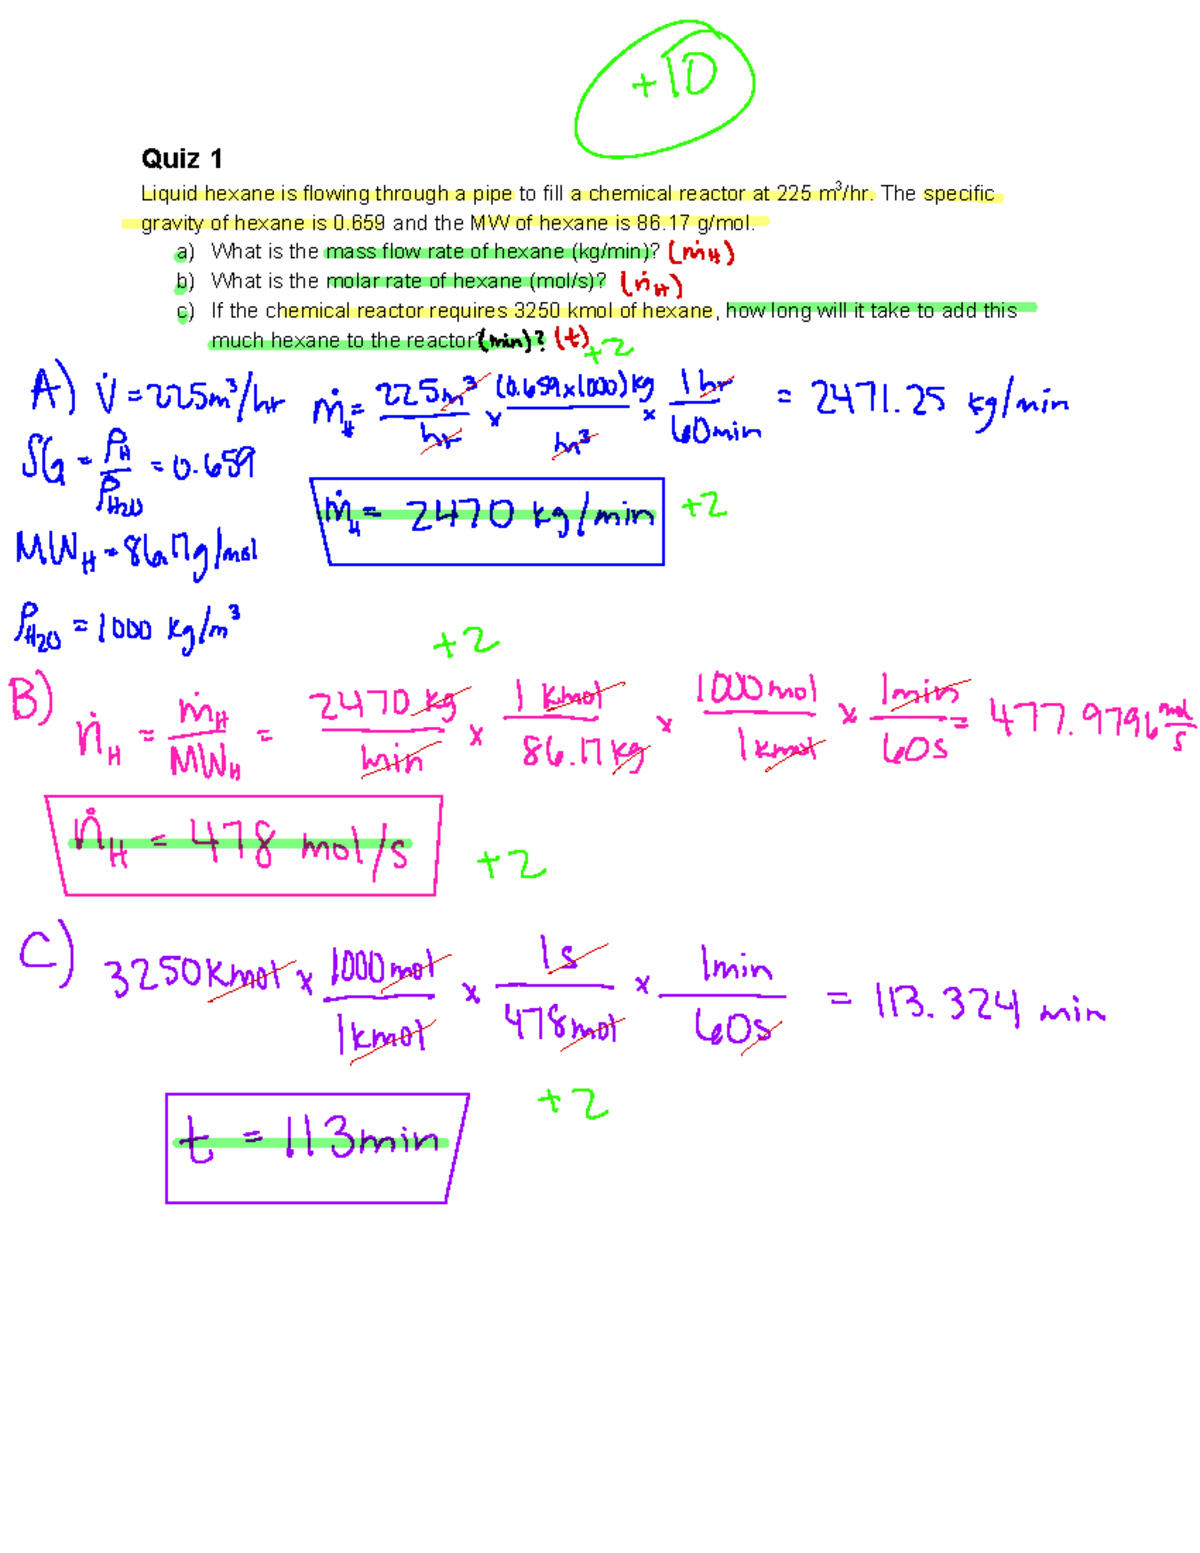 +10
Quiz 1
Liquid hexane is flowing through a pipe to fill a chemical reactor at 225 m³/hr. The specific
gravity of hexane is 0.659 and the MW of hexane is 86.17 g/mol.
a) What is the mass flow rate of hexane (kg/min)? (ṁH)
b) What is the molar rate of hexane (mol/s)? (ṅH)
c) If the chemical reactor requires 3250 kmol of hexane, how long will it take to add this
much hexane to the reactor? (min)? (t)
+2
A) V̇ = 225m³/hr ṁH = 225m³/hr × (0.659x1000)kg/m³ × 1hr/60min = 2471.25 kg/min
SG = ρH/ρH2O = 0.659
ṁH = 2470 kg/min +2
MWH = 86.17g/mol
ρH2O = 1000 kg/m³
+2
B) ṅH = ṁH/MWH = 2470 kg/min × 1 kmol/86.17kg × 1000mol/1kmol × 1min/60s = 477.9796 mol/s
ṅH = 478 mol/s +2
C) 3250kmol × 1000mol/1kmol × 1s/478mol × 1min/60s = 113.324 min
+2
t = 113min